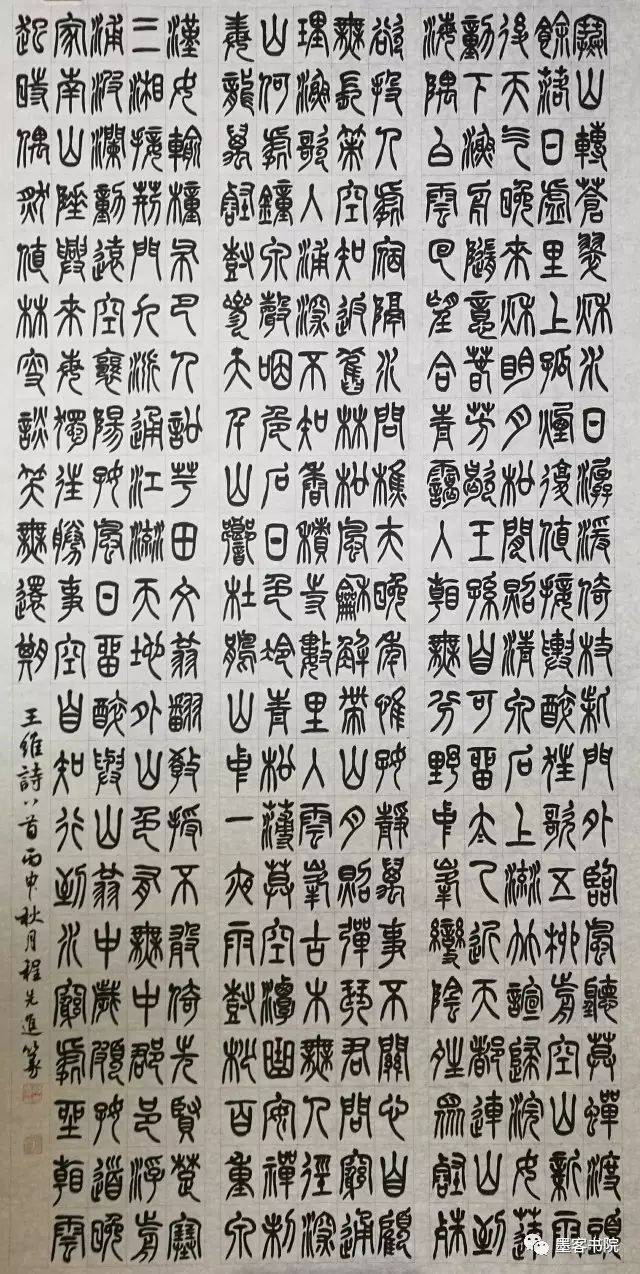 寒山轉蒼翠秋水日潺湲倚杖柴門外臨風聽暮蟬渡頭
餘落日墟里上孤煙復值接輿醉狂歌五柳前空山新雨
後天氣晚來秋明月松間照清泉石上流竹喧歸浣女蓮
動下漁舟隨意春芳歇王孫自可留太乙近天都連山到
海隅白雲回望合青靄入看無分野中峯變陰晴眾壑殊
欲投人處宿隔水問樵夫晚年惟好靜萬事不關心自顧
無長策空知返舊林松風吹解帶山月照彈琴君問窮通
理漁歌入浦深不知香積寺數里入雲峯古木無人徑深
山何處鐘泉聲咽危石日色冷青松薄暮空潭曲安禪制
毒龍萬壑樹參天千山響杜鵑山中一夜雨樹杪百重泉
漢女輸橦布巴人訟芋田文翁翻教授不敢倚先賢楚塞
三湘接荊門九派通江流天地外山色有無中郡邑浮前
浦波瀾動遠空襄陽好風日留醉與山翁中歲頗好道晚
家南山陲興來每獨往勝事空自知行到水窮處坐看雲
起時偶然值林叟談笑無還期
王維詩八首丙申秋月程先進篆
墨客书院